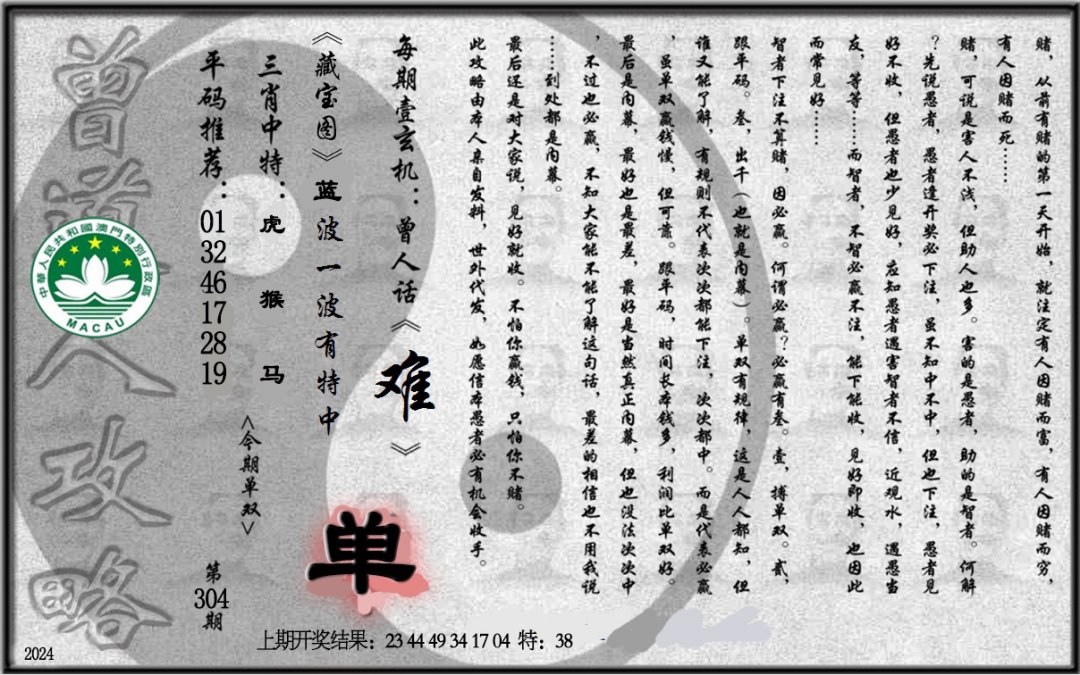 赌，从前有赌的第一天开始，就注定有人因赌而富，有人因赌而穷，
有人因赌而死……
赌，可说是害人不浅，但助人也多。害的是愚者，助的是智者。何解
？先说愚者，愚者逢开奖必下注，虽不知中不中，但也下注，愚者见
好不收，但愚者也少见好，应知愚者遇害智者不信，近观水，遇愚当
友，等等……而智者，不智必赢不注，能下能收，见好即收，也因此
而常见好……
智者下注不算赌，因必赢。何谓必赢？必赢有叁。壹，搏单双。贰，
跟单码。叁，出千（也就是内幕）。单双有规律，这是人人都知，但
谁又能了解，有规则不代表次次都能下注，次次都中。而是代表必赢
，虽单双赢钱慢，但可靠。跟单码，时间长本钱多，利润比单双好。
最后是内幕，最好也是最差，最好是当然真正内幕，但也没法次次中
，不过也必赢，不知大家能不能了解这句话，最差的相信也不用我说
……到处都是内幕。
最后还是对大家说，见好就收。不怕你赢钱，只怕你不赌。
此攻略由本人亲自发料，世外代发，如愿信本愚者必有机会收手。
每期壹玄机：曾人话《难》
《藏宝图》蓝波一波有特中
单
三肖中特：虎 猴 马
<今期单双>
平码推荐：01 32 46 17 28 19
第304期
曾道人攻略
中華人民共和國澳門特別行政區
MACAU
上期开奖结果：23 44 49 34 17 04 特：38
2024